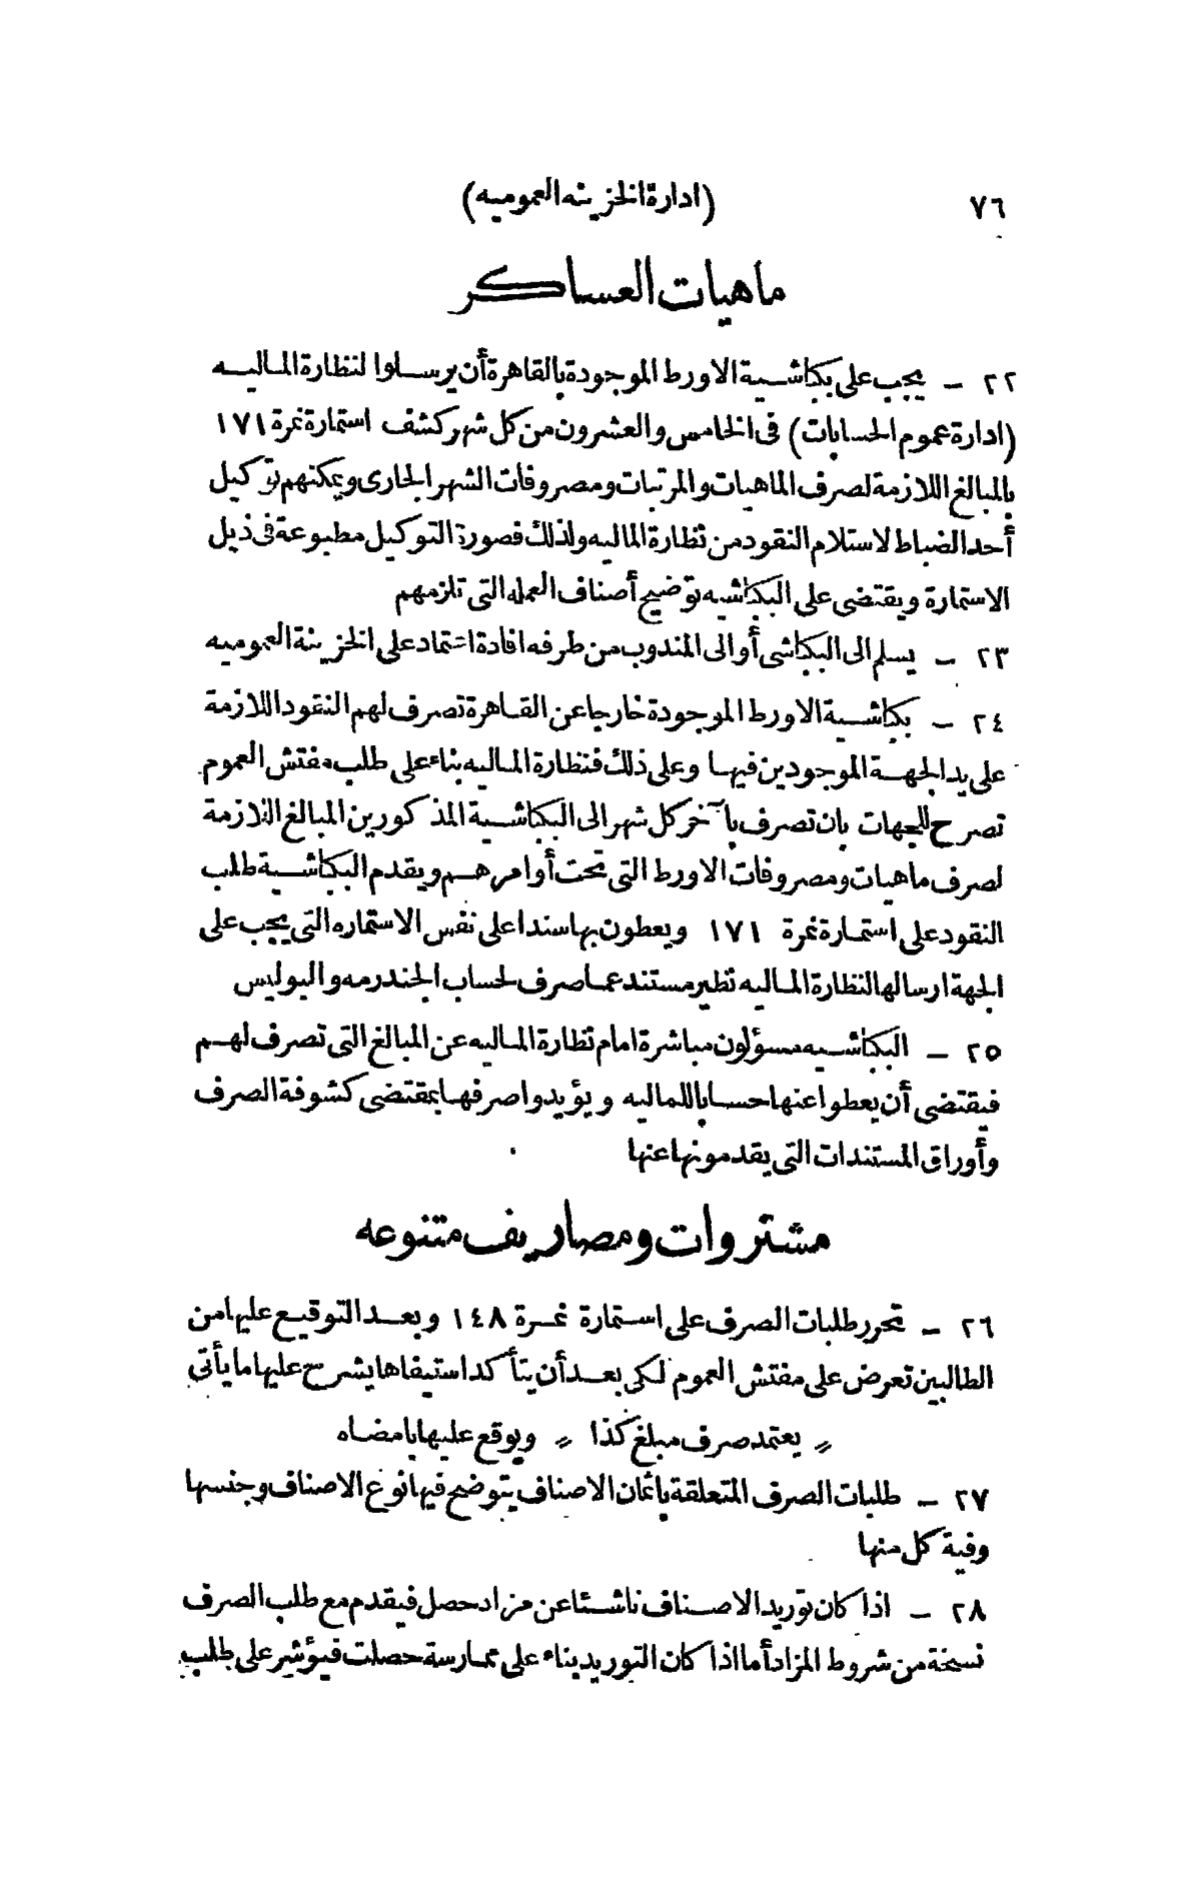 ٧٦ (ادارة الخزينه العموميه)
ماهيات العساكر
٢٢ – يجب على بكباشية الاورط الموجودة بالقاهرة أن يرسلوا لنظارة الماليه
(ادارة عموم الحسابات) فى الخامس والعشرون من كل شهر كشف استمارة نمرة ١٧١
بالمبالغ اللازمة لصرف الماهيات والمرتبات ومصروفات الشهر الجارى ويمكنهم توكيل
أحد الضباط لاستلام النقود من نظارة الماليه ولذلك فصورة التوكيل مطبوعة فى ذيل
الاستمارة ويقتضى على البكباشيه توضيح أصناف العمله التى تلزمهم
٢٣ – يسلم الى البكباشى أو الى المندوب من طرفه افادة اعتماد على الخزينة العموميه
٢٤ – بكباشية الاورط الموجودة خارجا عن القاهرة تصرف لهم النقود اللازمة
على يد الجهة الموجودين فيها وعلى ذلك فنظارة الماليه بناء على طلب مفتش العموم
تصرح للجهات بان تصرف بآخر كل شهر الى البكباشية المذكورين المبالغ اللازمة
لصرف ماهيات ومصروفات الاورط التى تحت أوامرهم ويقدم البكباشية طلب
النقود على استمارة نمرة ١٧١ ويعطون بها سندا على نفس الاستماره التى يجب على
الجهة ارسالها لنظارة الماليه نظير مستند عما صرف لحساب الجندرمه والبوليس
٢٥ – البكباشيه مسؤلون مباشرة امام نظارة الماليه عن المبالغ التى تصرف لهم
فيقتضى أن يعطوا عنها حسابا للماليه ويؤيدوا صرفها بمقتضى كشوفة الصرف
وأوراق المستندات التى يقدمونها عنها
مشتروات ومصاريف متنوعه
٢٦ – تحرر طلبات الصرف على استمارة نمرة ١٤٨ وبعد التوقيع عليها من
الطالبين تعرض على مفتش العموم لكى بعد أن يتأكد استيفاها يشرح عليها ما يأتى
〃 يعتمد صرف مبلغ كذا 〃 ويوقع عليها بامضاه
٢٧ – طلبات الصرف المتعلقة باثمان الاصناف يتوضح فيها نوع الاصناف وجنسها
وفية كل منها
٢٨ – اذا كان توريد الاصناف ناشئا عن مزاد حصل فيقدم مع طلب الصرف
نسخة من شروط المزاد أما اذا كان التوريد بناء على ممارسة حصلت فيؤشر على طلب